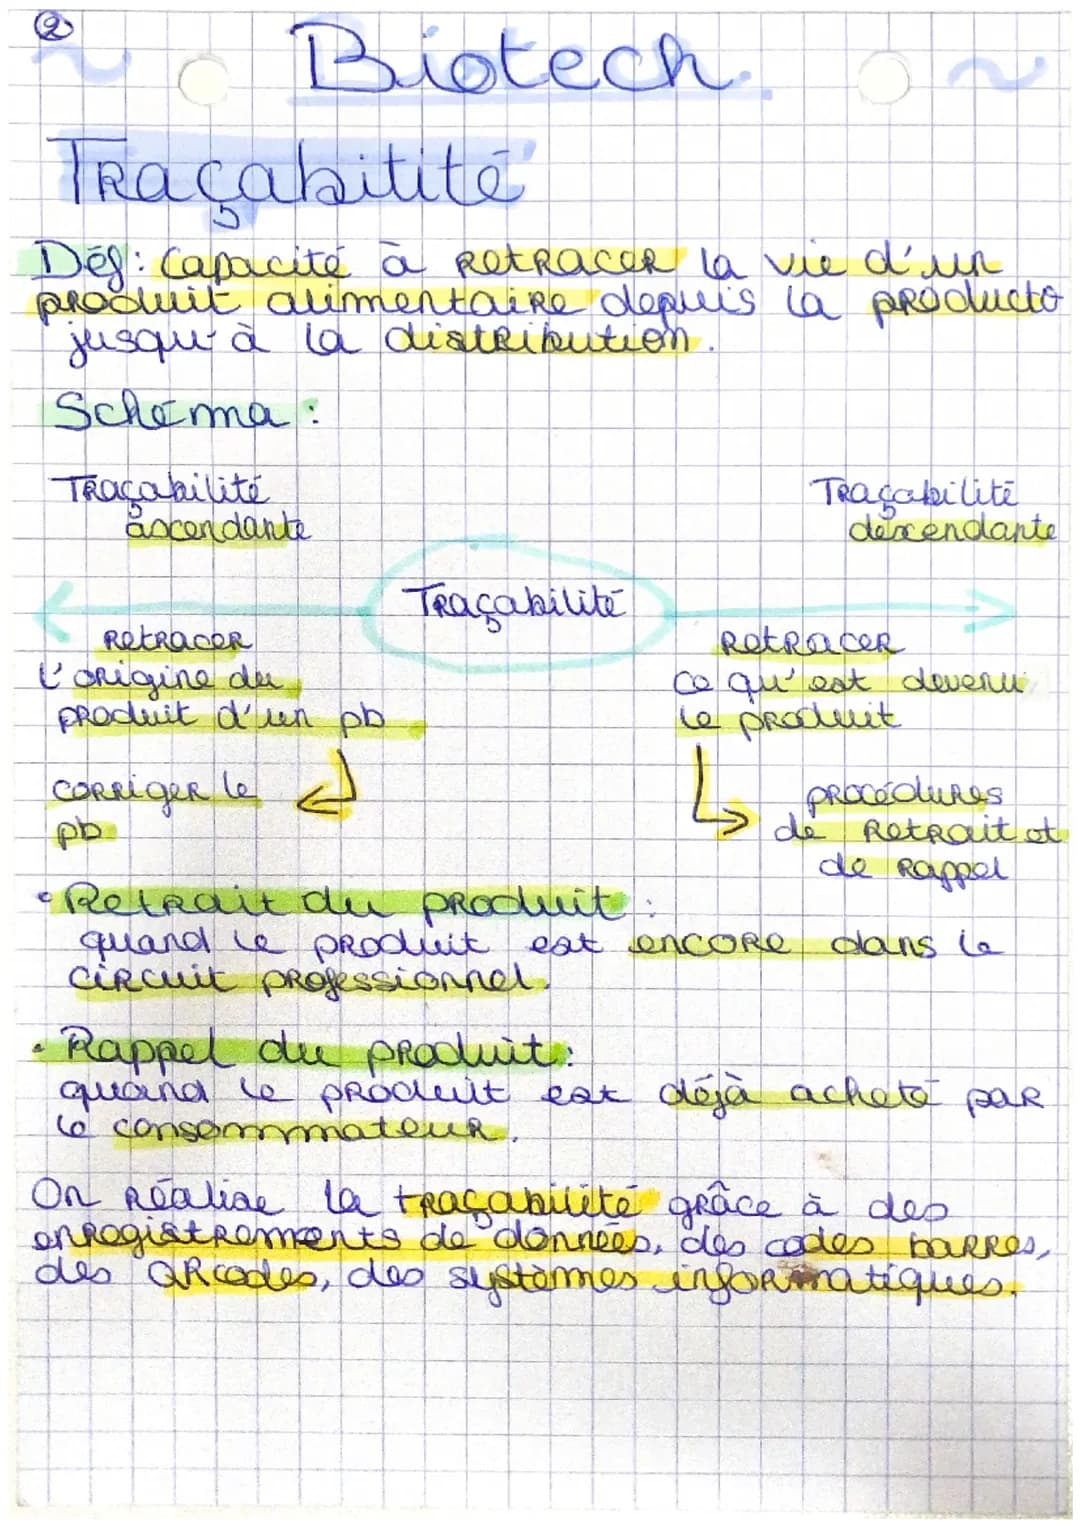 2
Biotech.
Traçabitité
Déf: Capacité à retracer la vie d'un
produit alimentaire depuis la producto
jusqu'à la distribution.
Schéma :
Traçabilité
ascendante
Traçabilité
descendante
Traçabilité
retracer
l'origine du
produit d'un pb
corriger le
pb
retracer
ce qu'est devenu
le produit
procédures
de retrait et
de rappel
• Retrait du produit :
quand le produit est encore dans le
circuit professionnel.
• Rappel du produit :
quand le produit est déjà acheté par
le consommmateur.
On réalise la traçabilité grâce à des
enregistrements de données, des codes barres,
des QRcodes, des systèmes informatiques.